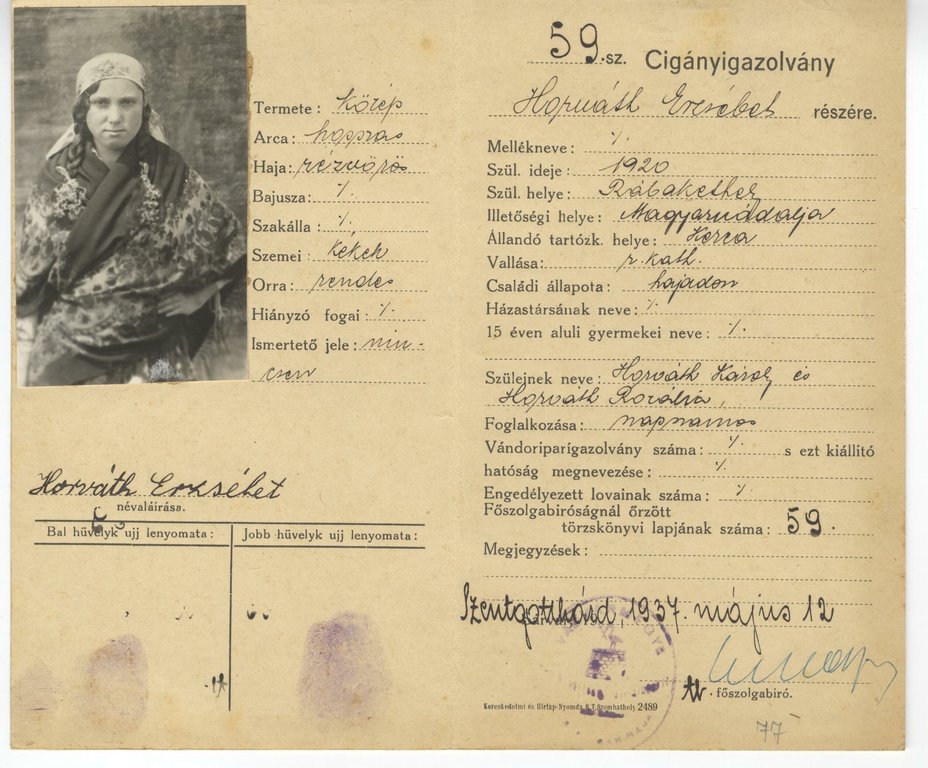 Termete: közép
Arca: hosszas
Haja: rézvörös
Bajusza: ·/·
Szakálla: ·/·
Szemei: kékek
Orra: rendes
Hiányzó fogai: ·/·
Ismertető jele: nin-
csen
Horváth Erzsébet
névaláírása.
Bal hüvelyk ujj lenyomata:
Jobb hüvelyk ujj lenyomata:
59.sz. Cigányigazolvány
Horváth Erzsébet részére.
Mellékneve: ·/·
Szül. ideje: 1920
Szül. helye: Rábakethely
Illetőségi helye: Magyarnádalja
Állandó tartózk. helye: Kerca
Vallása: r. kath.
Családi állapota: hajadon
Házastársának neve: ·/·
15 éven aluli gyermekei neve: ·/·
Szüleinek neve: Horváth Károly és
Horváth Rozália,
Foglalkozása: napszámos
Vándoriparigazolvány száma: ·/· s ezt kiállító
hatóság megnevezése: ·/·
Engedélyezett lovainak száma: ·/·
Főszolgabiróságnál őrzött
törzskönyvi lapjának száma: 59.
Megjegyzések:
Szentgotthárd, 1937. május 12
tb. főszolgabiró.
Kereskedelmi és Hirlap-Nyomda R.T. Szombathely 2489
77